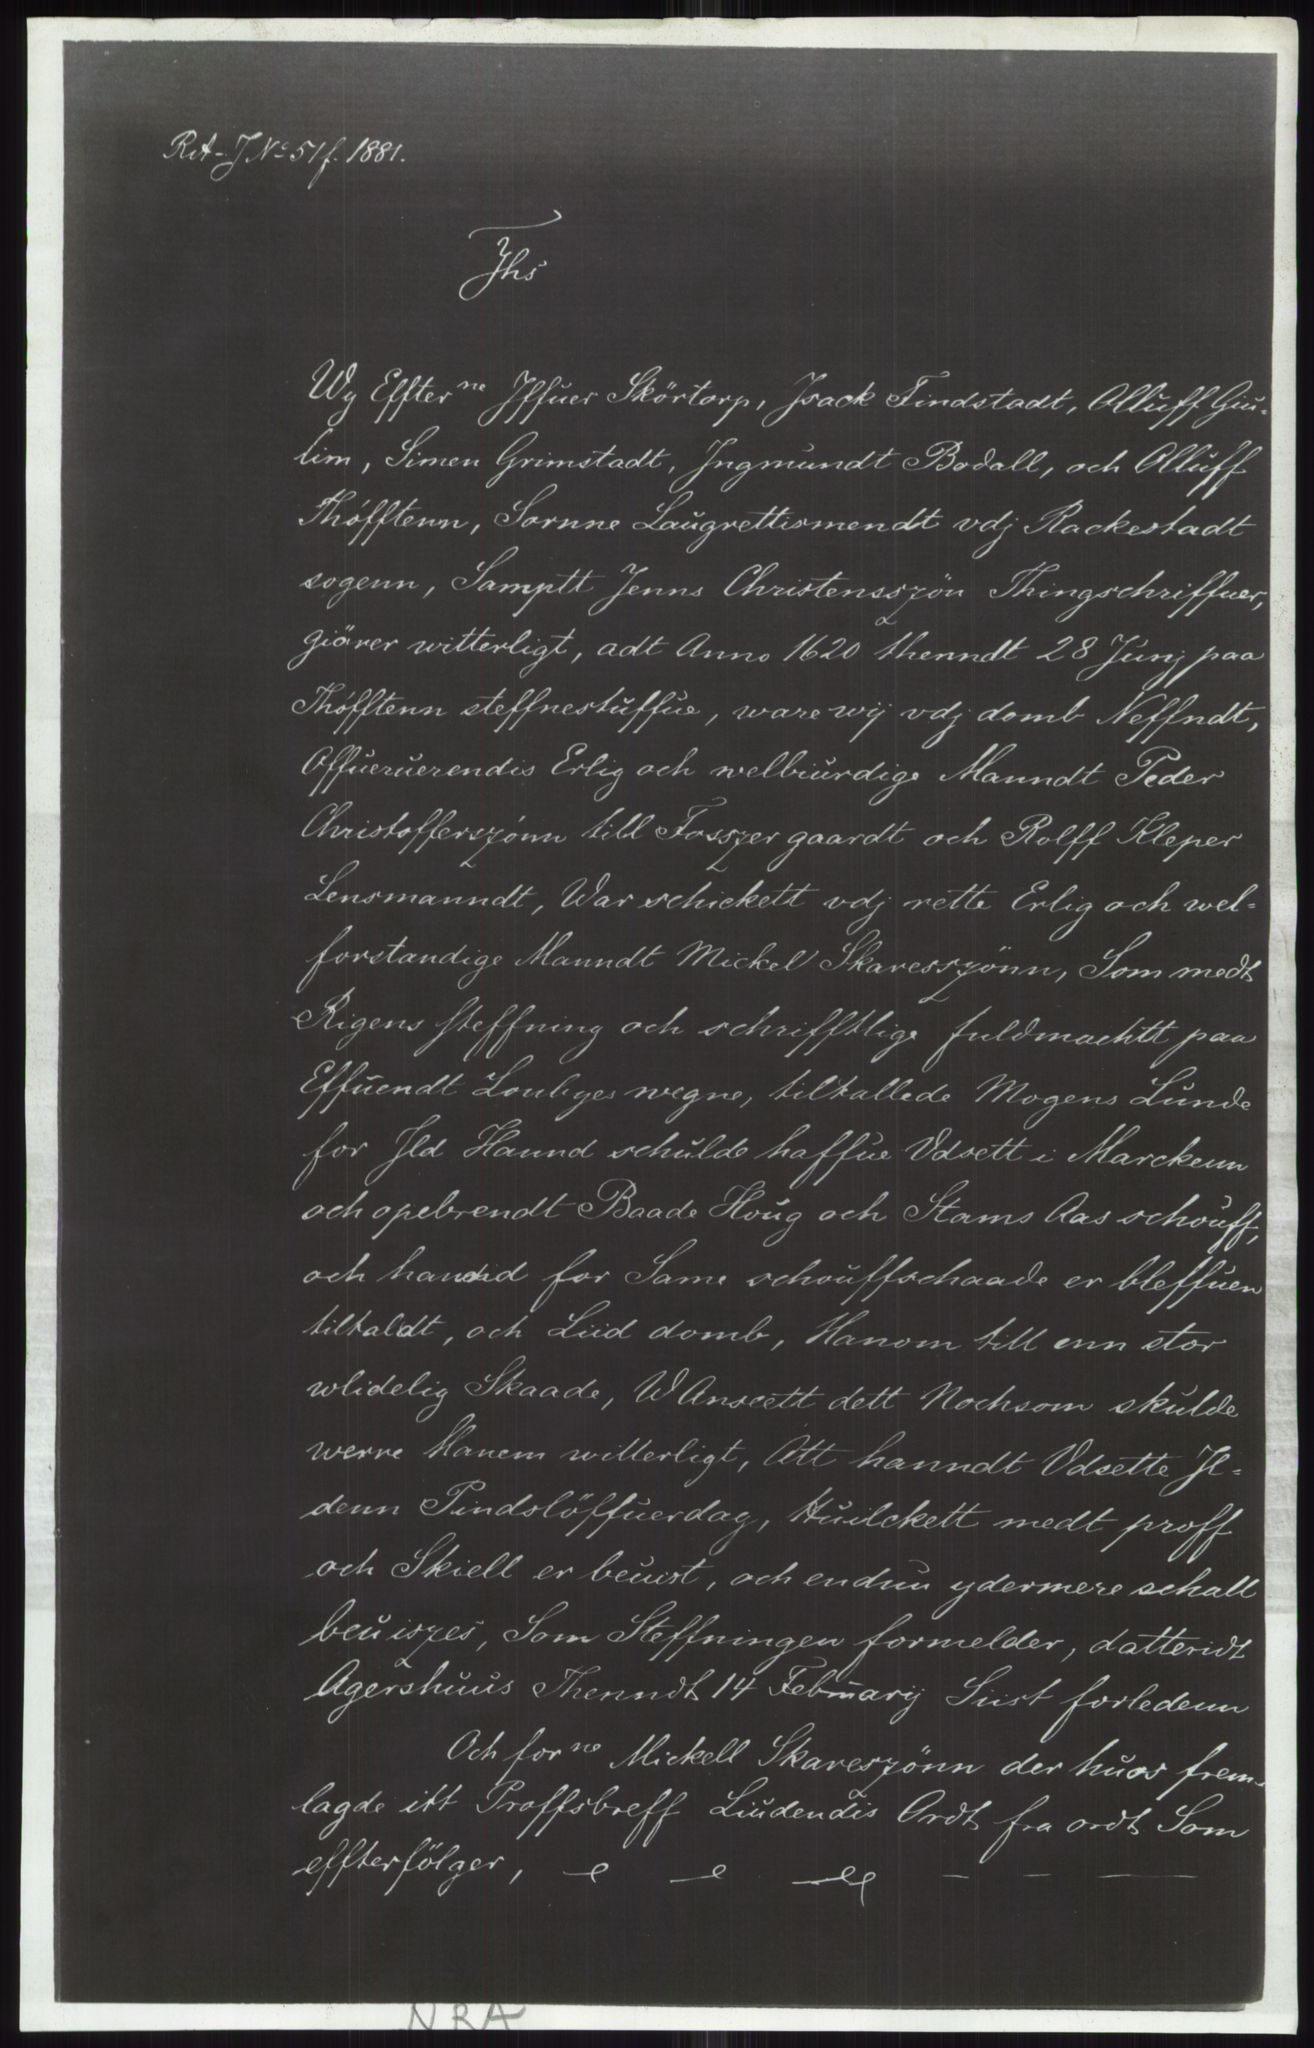 RA-J No 51 f. 1881.
Jhs
Wy Effter ne Jffuer Skörtorp, Jsack Findstadt, Olluff Giu-
lim, Simen Grimstadt, Jngmundt Bodall, och Olluff
Thöfftenn, Sornne Laugrettismendt vdj Rackestadt
sogenn, Samptt Jenns Christensszön Thingschriffuer,
giörer witterligt, adt Anno 1620 thenndt 28 Junj paa
Thöfftenn steffnestuffue, ware wij vdj domb Neffndt,
Offueruerendis Erlig och welbiurdige Manndt Peder
Christofferszönn till Fosszer gaardt och Rolff Kleper
Lensmanndt, War schickett vdj rette Erlig och wel-
forstandige Manndt Mickel Skaresszönn, Som medt
Rigens steffning och schrifftlige fuldmachtt paa
Effuendt Loubyes wegne, tiltallede Mogens Lunde
for Jld Hannd schulde haffue Vdsett i Marckenn
och opebrendt Baade Houg och Stams Aas schouff,
och hand for Same schouffschaade er bleffuen
tiltaldt, och Liid domb, Hanom till enn stor
wlidelig Skaade, WAnseett dett Nochsom skulde
werre Hanem witterligt, Att hanndt Vdsette Jl-
denn Pindslöffuerdag, Huilckett medt proff
och Skiell er beuist, och endnu ydermere schall
beuiszes, Som Steffningen formelder, datteridt
Agershuus Thenndt 14 Februarij Siist forledenn
Och for ne Mickell Skareszönn der huos frem-
lagde itt Proffsbreff Liudendis Ordt fra ordt Som
effterfölger,
NRA